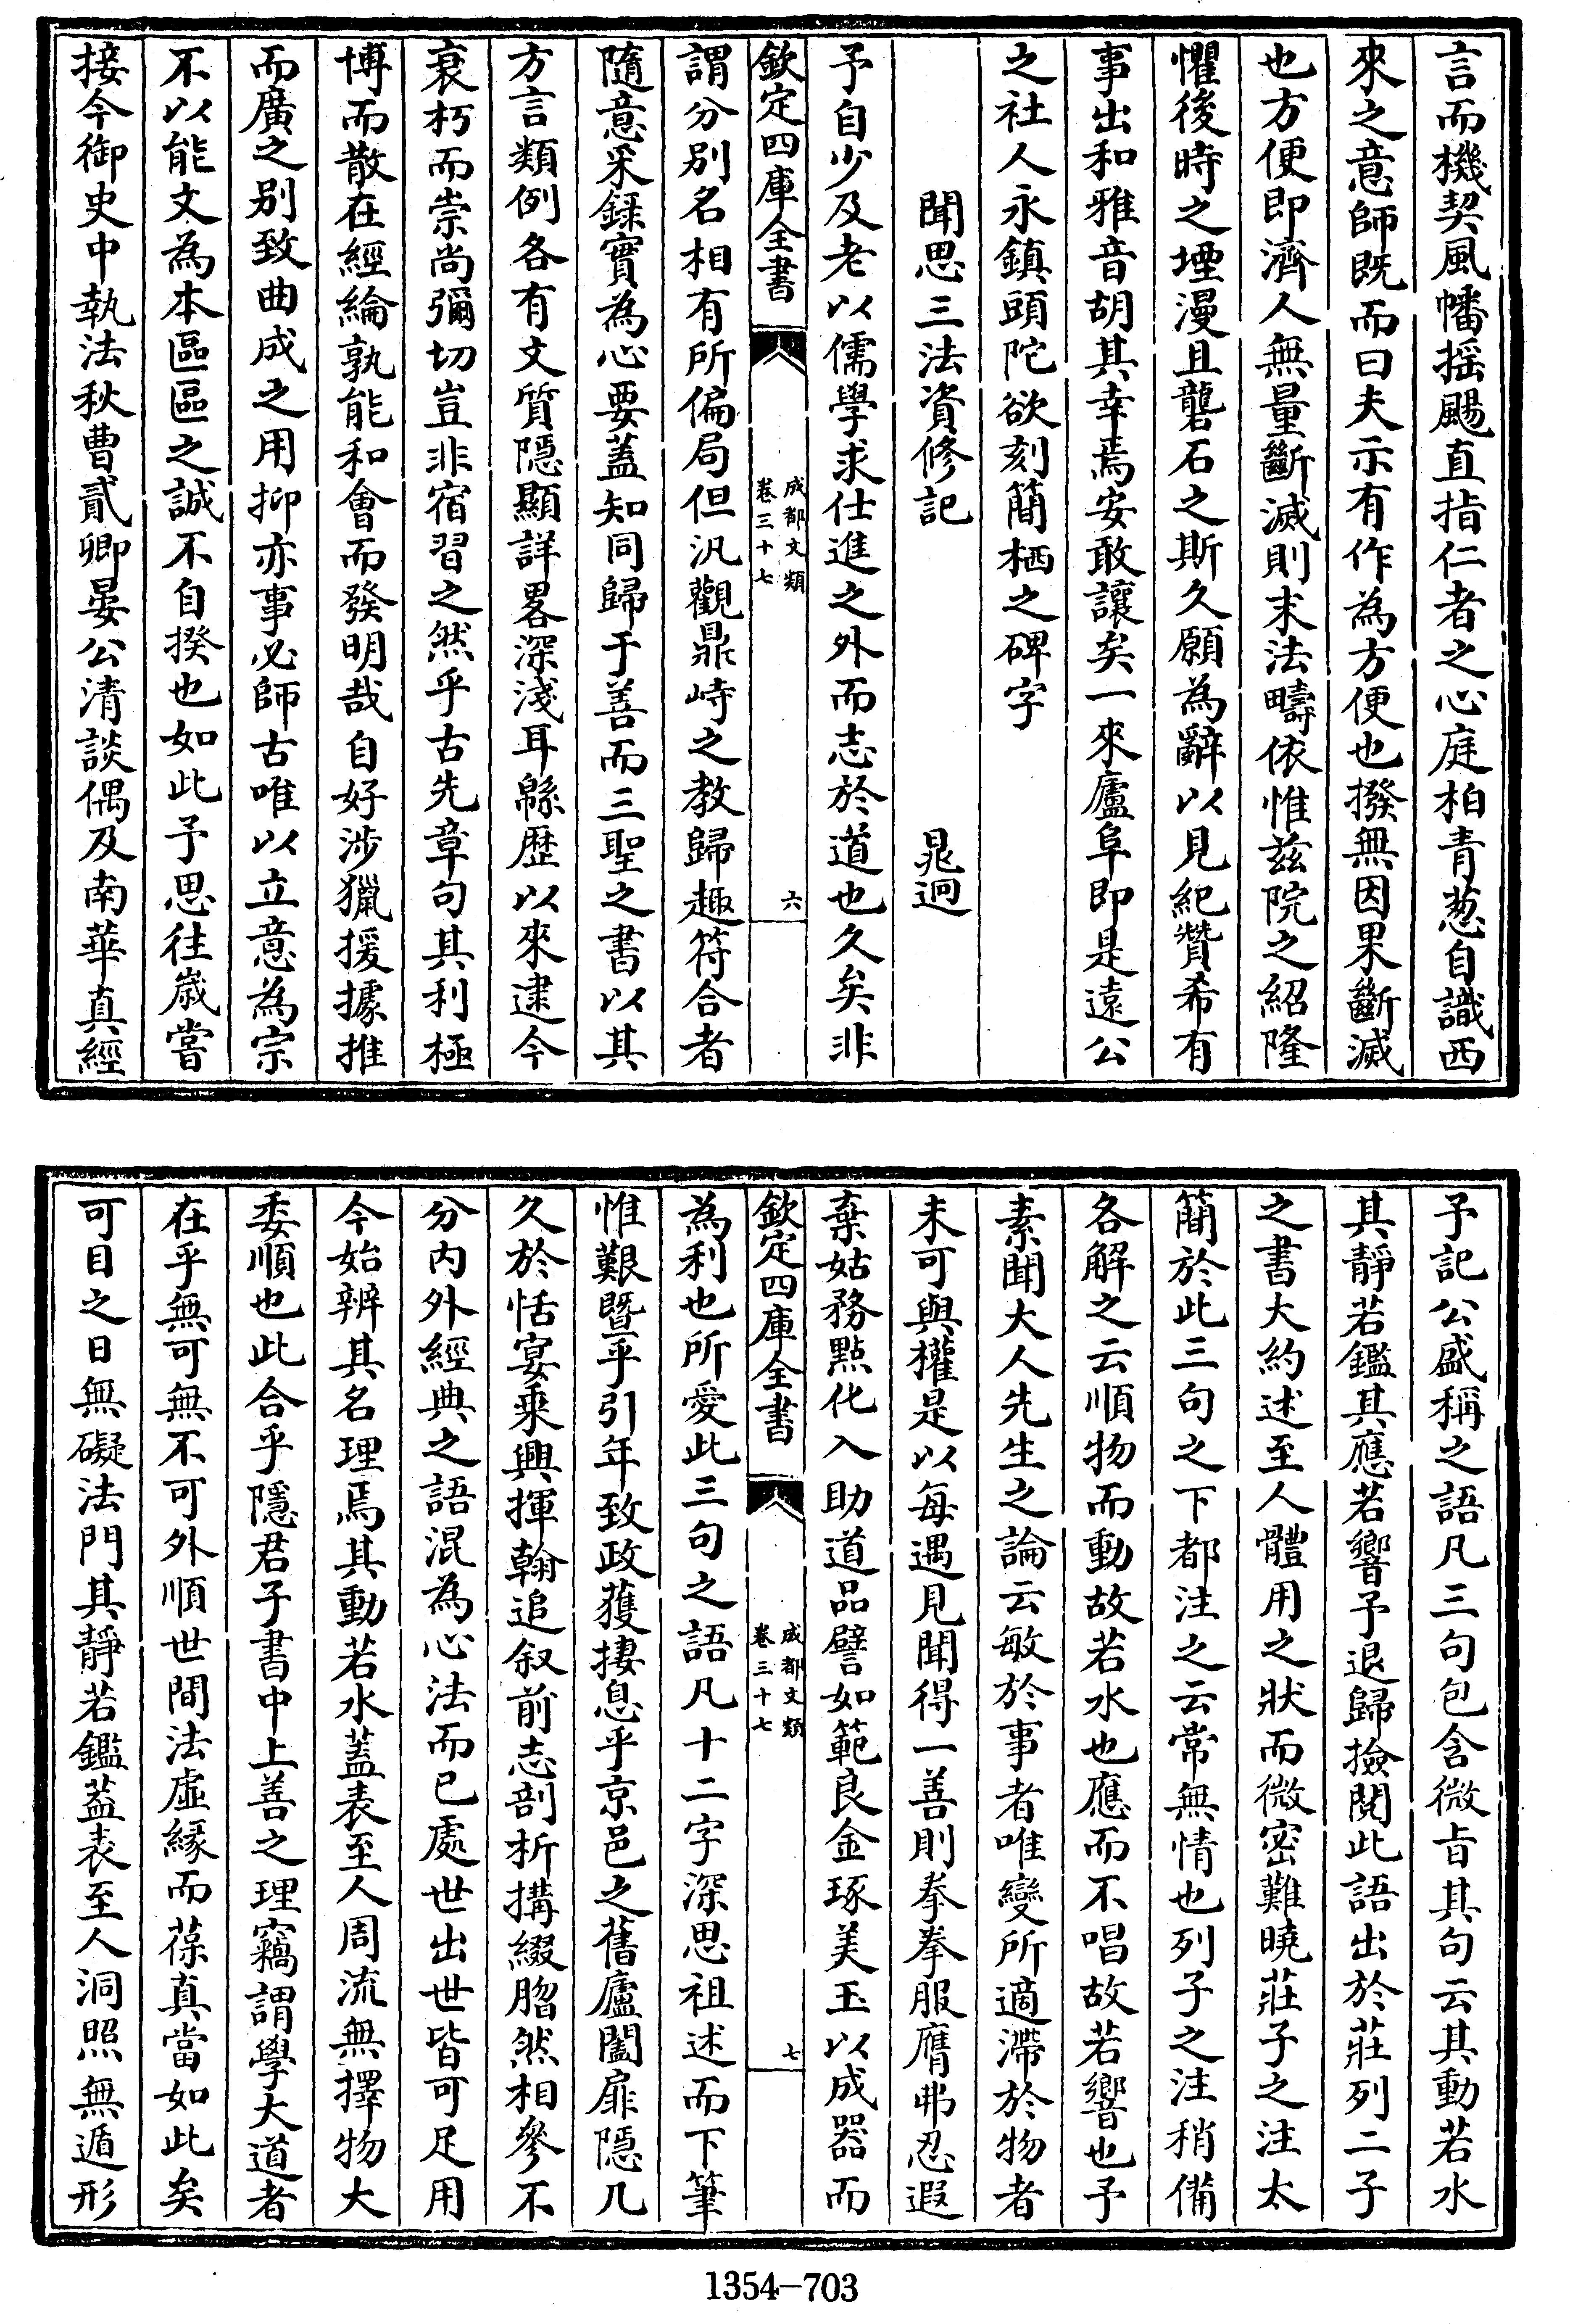 言而機契風幡揺颺直指仁者之心庭柏青葱自識西
來之意師既而曰夫示有作為方便也撥無因果斷滅
也方便即濟人無量斷滅則末法疇依惟兹院之紹隆
懼後時之堙漫且礱石之斯久願為辭以見紀贊希有
事出和雅音胡其幸焉安敢讓矣一來廬阜即是遠公
之社人永鎮頭陀欲刻簡栖之碑字
聞思三法資修記 晁迥
予自少及老以儒學求仕進之外而志於道也久矣非
欽定四庫全書 成都文類 卷三十七 六
謂分别名相有所偏局但汎觀鼎峙之教歸趣符合者
隨意采録實為心要蓋知同歸于善而三聖之書以其
方言類例各有文質隱顯詳畧深淺耳緜歴以來逮今
衰朽而崇尚彌切豈非宿習之然乎古先章句其利極
博而散在經綸孰能和會而發明哉自好涉獵援據推
而廣之别致曲成之用抑亦事必師古唯以立意為宗
不以能文為本區區之誠不自揆也如此予思往嵗嘗
接今御史中執法秋曹貳卿晏公清談偶及南華真經
予記公盛稱之語凡三句包含微旨其句云其動若水
其靜若鑑其應若響予退歸撿閱此語出於莊列二子
之書大約述至人體用之狀而微密難曉莊子之注太
簡於此三句之下都注之云常無情也列子之注稍備
各解之云順物而動故若水也應而不唱故若響也予
素聞大人先生之論云敏於事者唯變所適滯於物者
未可與權是以每遇見聞得一善則拳拳服膺弗忍遐
棄姑務點化入助道品譬如範良金琢美玉以成器而
欽定四庫全書 成都文類 卷三十七 七
為利也所愛此三句之語凡十二字深思祖述而下筆
惟艱暨乎引年致政獲捿息乎京邑之舊廬闔扉隱几
久於恬宴乘興揮翰追叙前志剖析搆綴脗然相參不
分内外經典之語混為心法而已處世出世皆可足用
今始辨其名理焉其動若水蓋表至人周流無擇物大
委順也此合乎隱君子書中上善之理竊謂學大道者
在乎無可無不可外順世間法虛緣而葆真當如此矣
可目之曰無礙法門其靜若鑑葢表至人洞照無遁形
1354—703